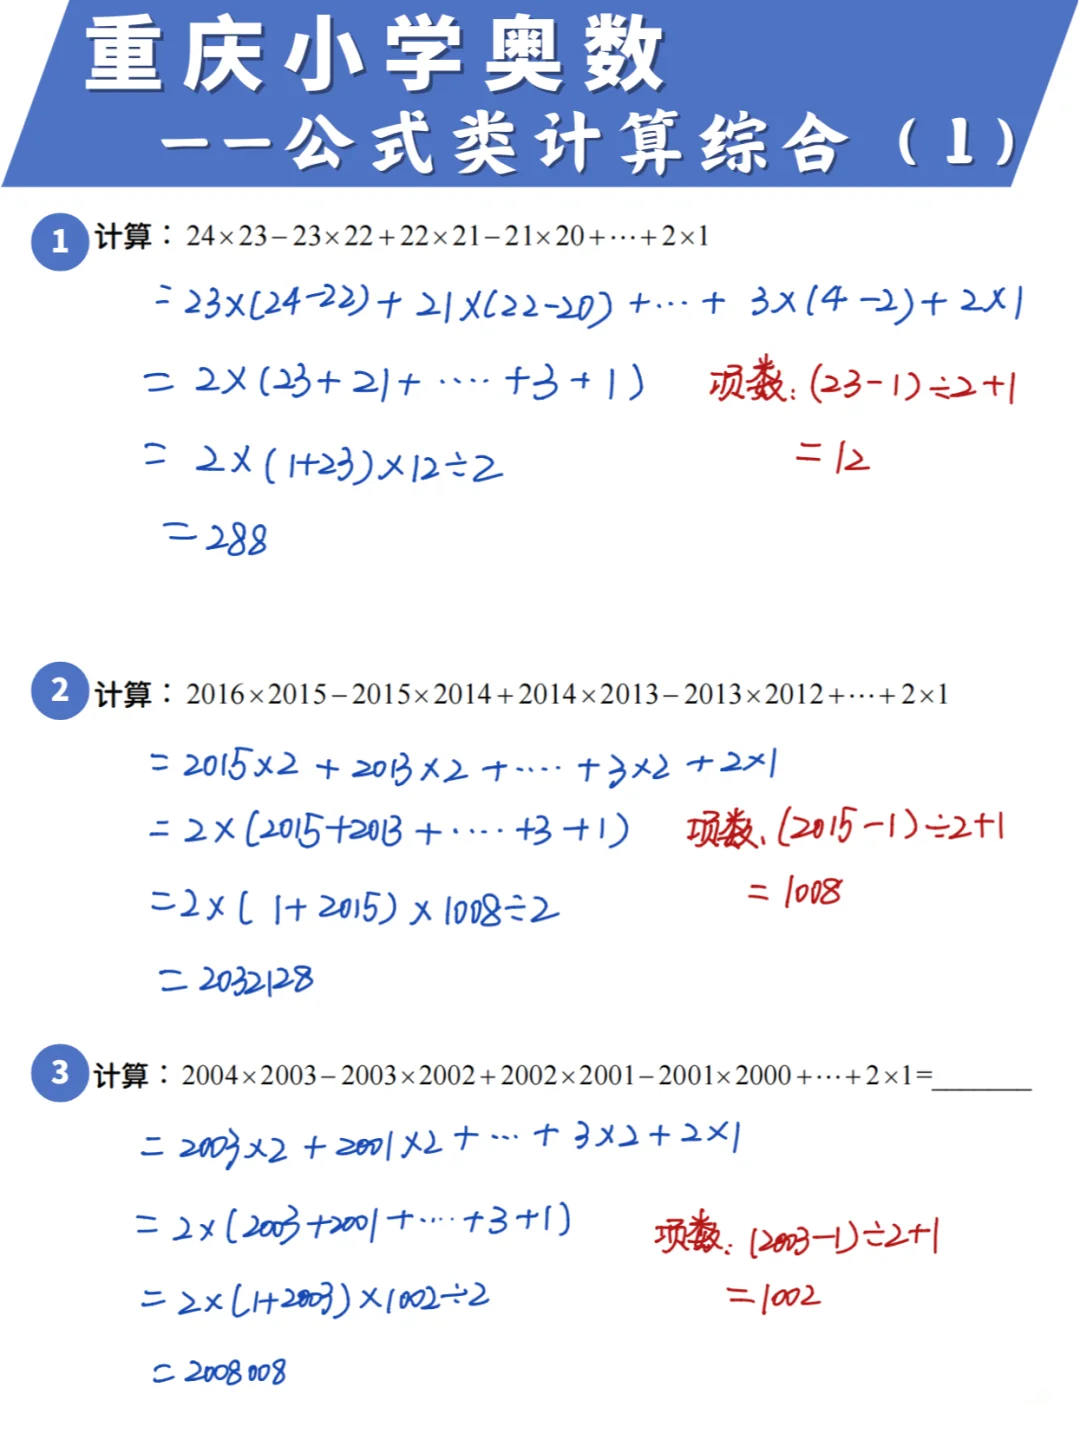 重庆小学奥数
——公式类计算综合（1）
1 计算：24×23−23×22+22×21−21×20+⋯+2×1
=23×(24-22)+21×(22-20)+⋯+3×(4-2)+2×1
=2×(23+21+⋯⋯+3+1) 项数:(23-1)÷2+1
=2×(1+23)×12÷2 =12
=288
2 计算：2016×2015−2015×2014+2014×2013−2013×2012+⋯+2×1
=2015×2+2013×2+⋯⋯+3×2+2×1
=2×(2015+2013+⋯⋯+3+1) 项数、(2015-1)÷2+1
=2×(1+2015)×1008÷2 =1008
=2032128
3 计算：2004×2003−2003×2002+2002×2001−2001×2000+⋯+2×1=______
=2003×2+2001×2+⋯+3×2+2×1
=2×(2003+2001+⋯⋯+3+1) 项数:(2003-1)÷2+1
=2×(1+2003)×1002÷2 =1002
=2008008